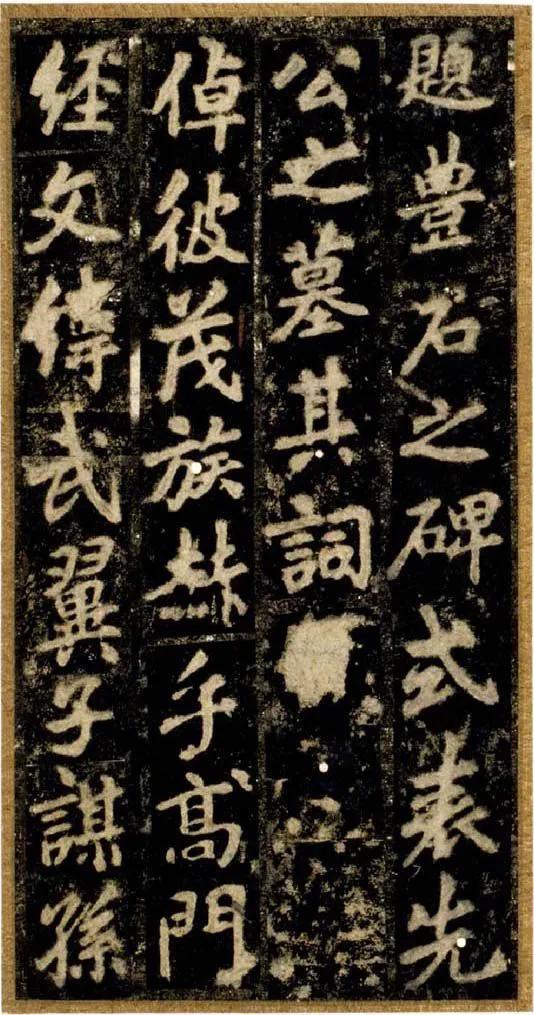 題豊石之碑式表先
公之墓其詞
倬彼茂族赫乎髙門
經文緯武翼子謀孫